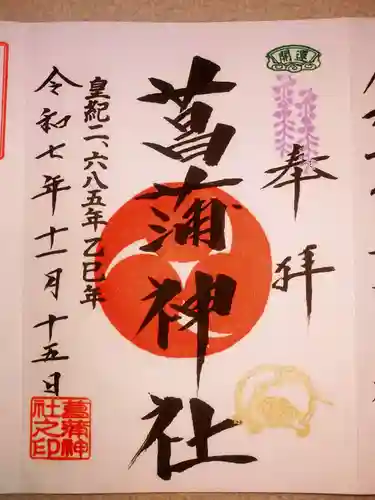 開運
奉拝
菖蒲神社
皇紀二、六八五年乙巳年
令和七年十一月十五日
菖蒲神社之印